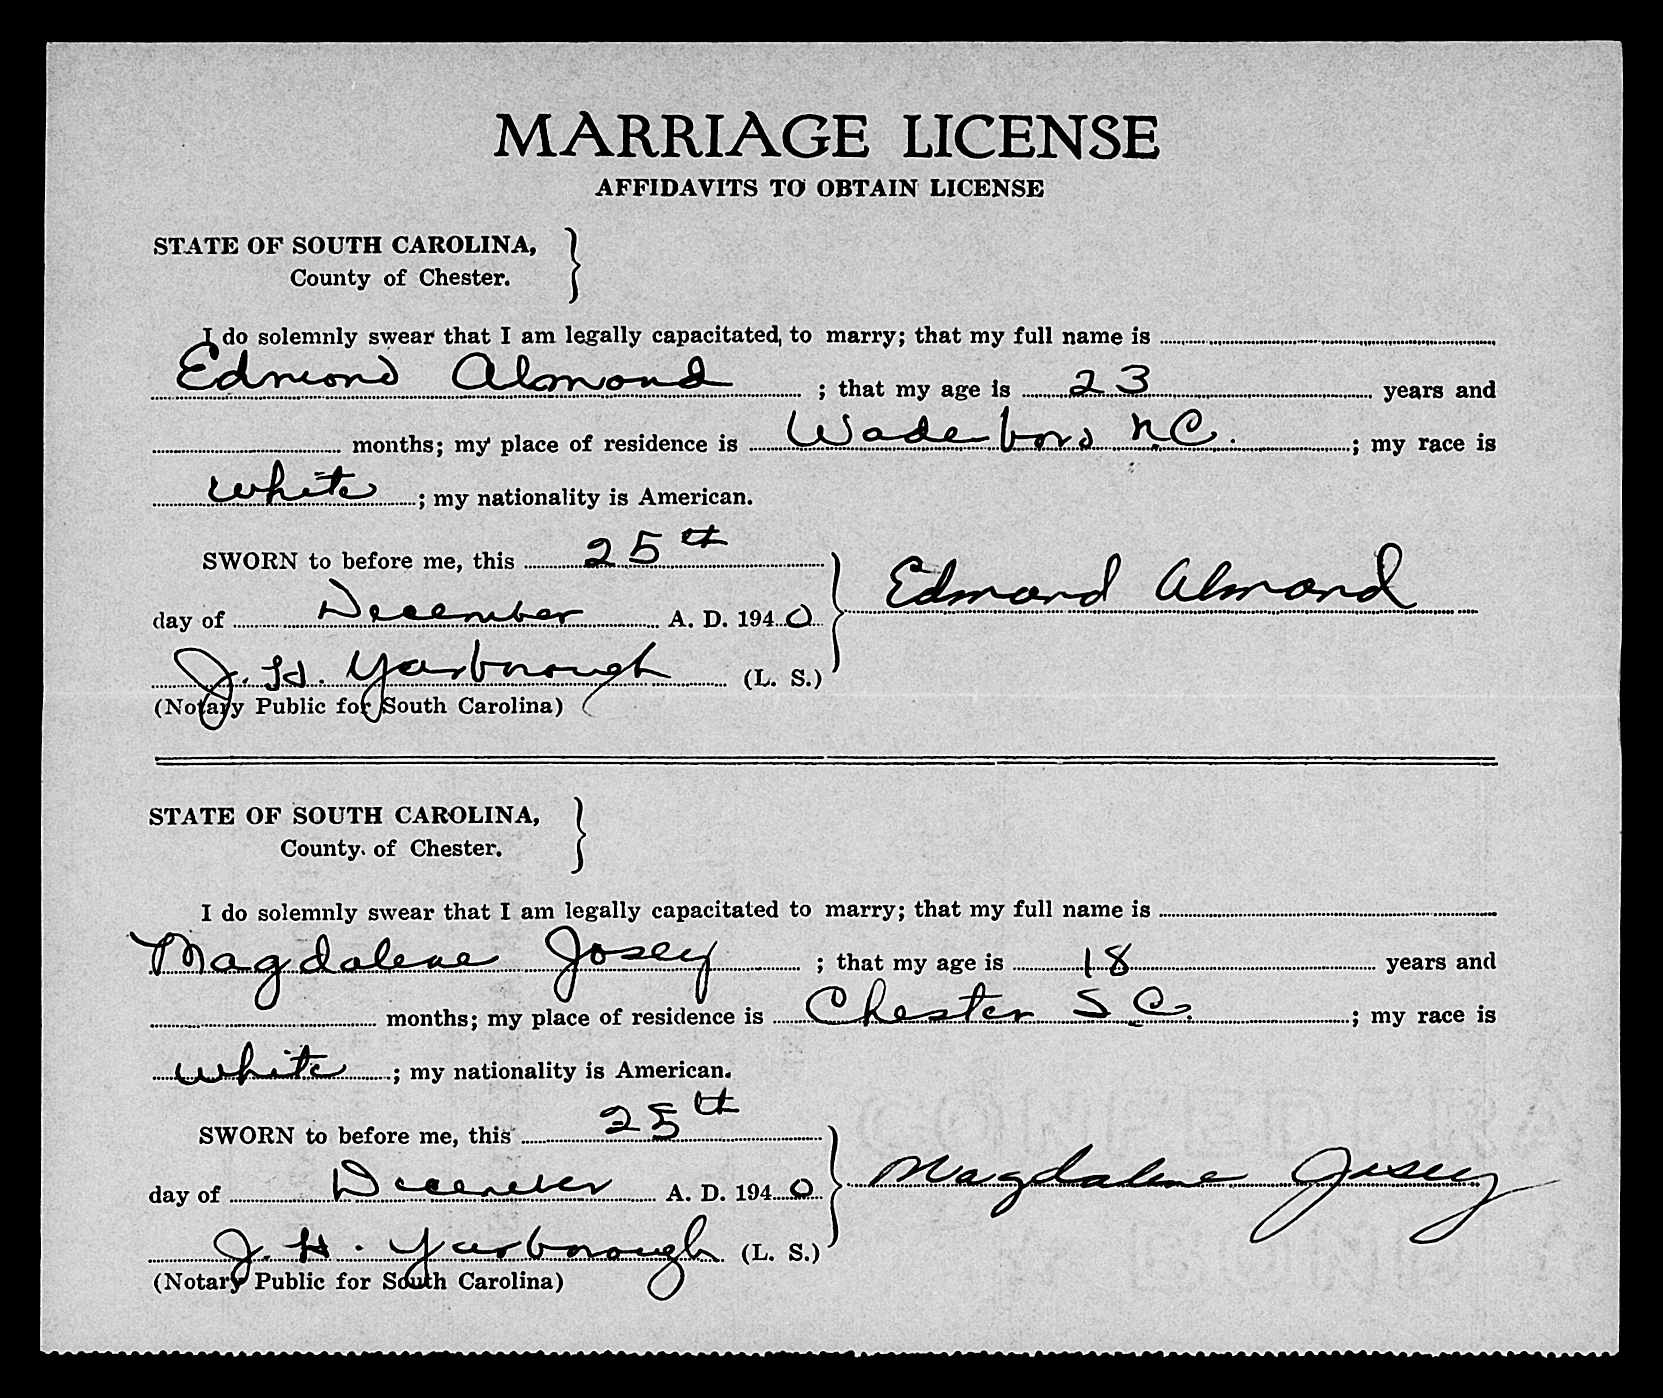 MARRIAGE LICENSE
AFFIDAVITS TO OBTAIN LICENSE
STATE OF SOUTH CAROLINA,
County of Chester.
I do solemnly swear that I am legally capacitated, to marry; that my full name is
Edmond Almond ; that my age is 23 years and
months; my place of residence is Wadesboro N.C. ; my race is
white ; my nationality is American.
SWORN to before me, this 25th
day of December A. D. 1940
Edmond Almond
J. H. Yarborough (L. S.)
(Notary Public for South Carolina)
STATE OF SOUTH CAROLINA,
County of Chester.
I do solemnly swear that I am legally capacitated to marry; that my full name is
Magdalene Josey ; that my age is 18 years and
months; my place of residence is Chester S.C. ; my race is
white ; my nationality is American.
SWORN to before me, this 25th
day of December A. D. 1940
Magdalene Josey
J. H. Yarborough (L. S.)
(Notary Public for South Carolina)